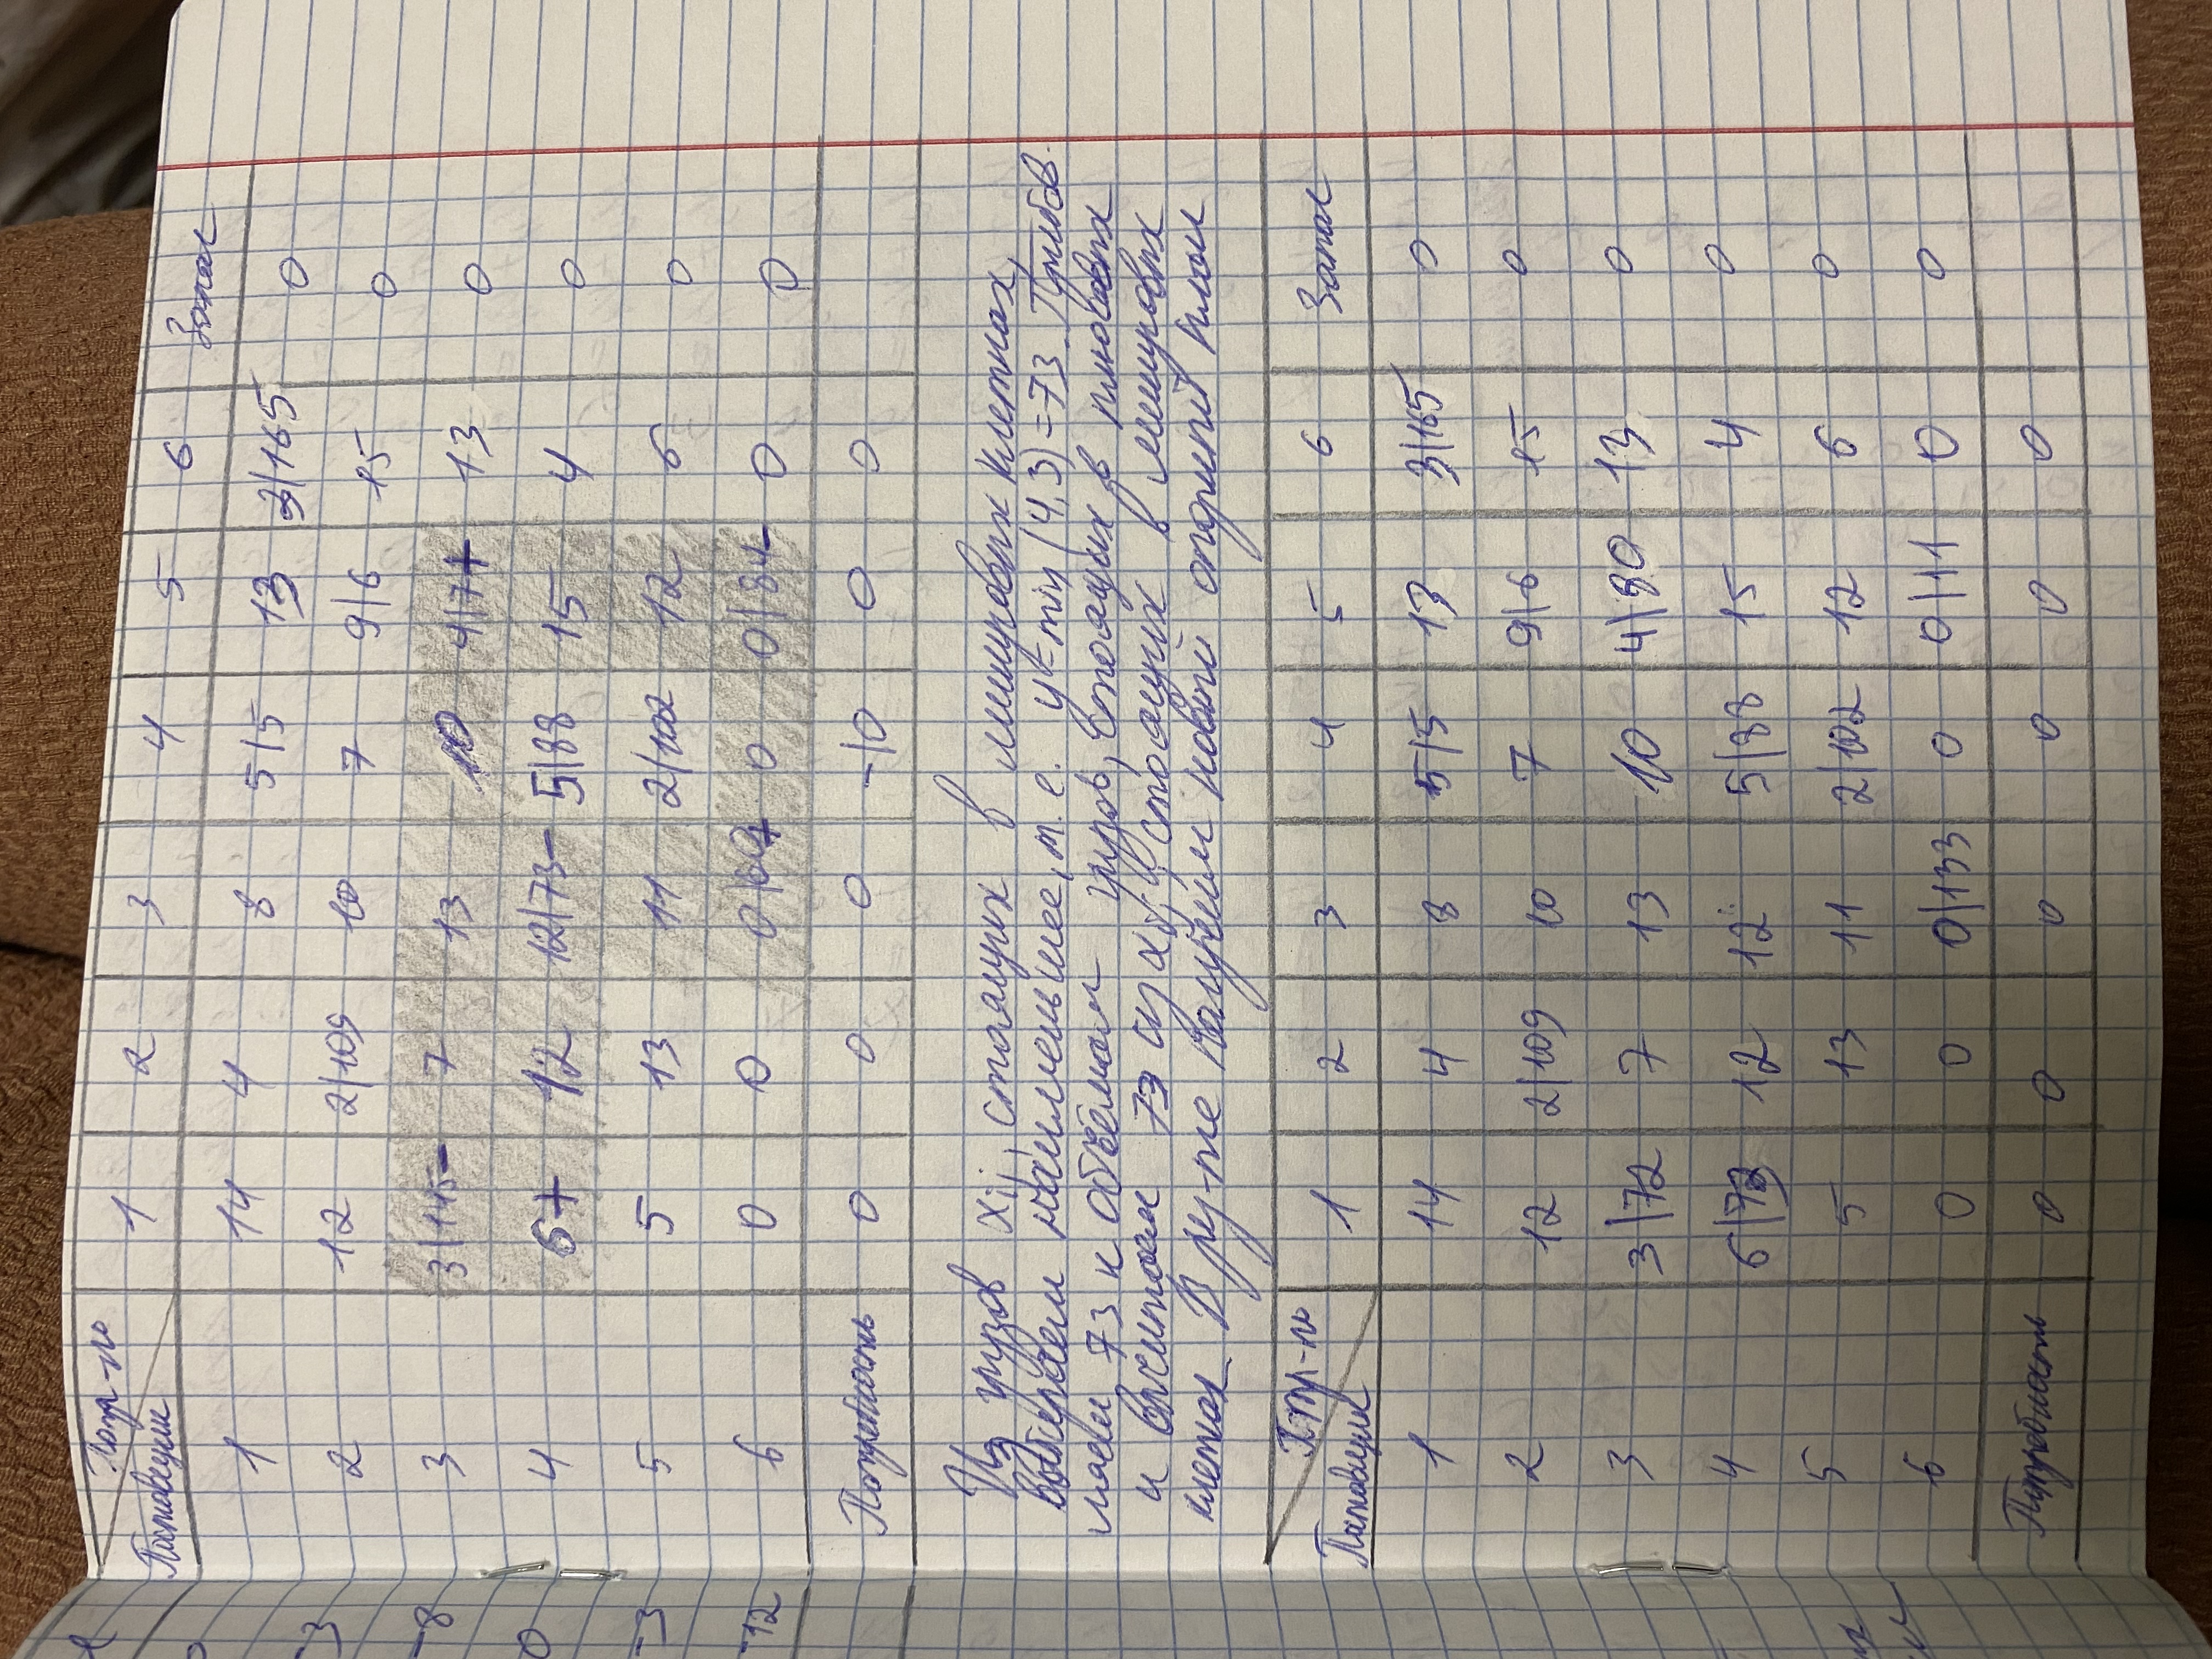 Потр-ль
Поставщик 1 2 3 4 5 6 Запас
1 14 4 8 5|5 13 3|165 0
2 12 2|109 10 7 9|6 15 0
3 3|145- 7 13 10 4|7+ 13 0
4 6+ 12 12|73- 5|88 15 4 0
5 5 13 11 2|102 12 6 0
6 0 0 0|60+ 0 0|84- 0 0
Потребность 0 0 0 -10 0 0
Из грузов xij, стоящих в минусовых клетках,
выбираем наименьшее, т. е. y=min (4,3)=73. Прибав-
ляем 73 к объёмам грузов, стоящих в плюсовых
и вычитаем 73 из xij, стоящих в минусовых
клетках. В рез-те получим новый опорный план
Птр-ль
Поставщик 1 2 3 4 5 6 Запас
1 14 4 8 5|5 13 3|165 0
2 12 2|109 10 7 9|6 15 0
3 3|72 7 13 10 4|80 13 0
4 6|73 12 12 5|88 15 4 0
5 5 13 11 2|102 12 6 0
6 0 0 0|133 0 0|11 0 0
Потребность 0 0 0 0 0 0
-3
-8
0
-3
-12